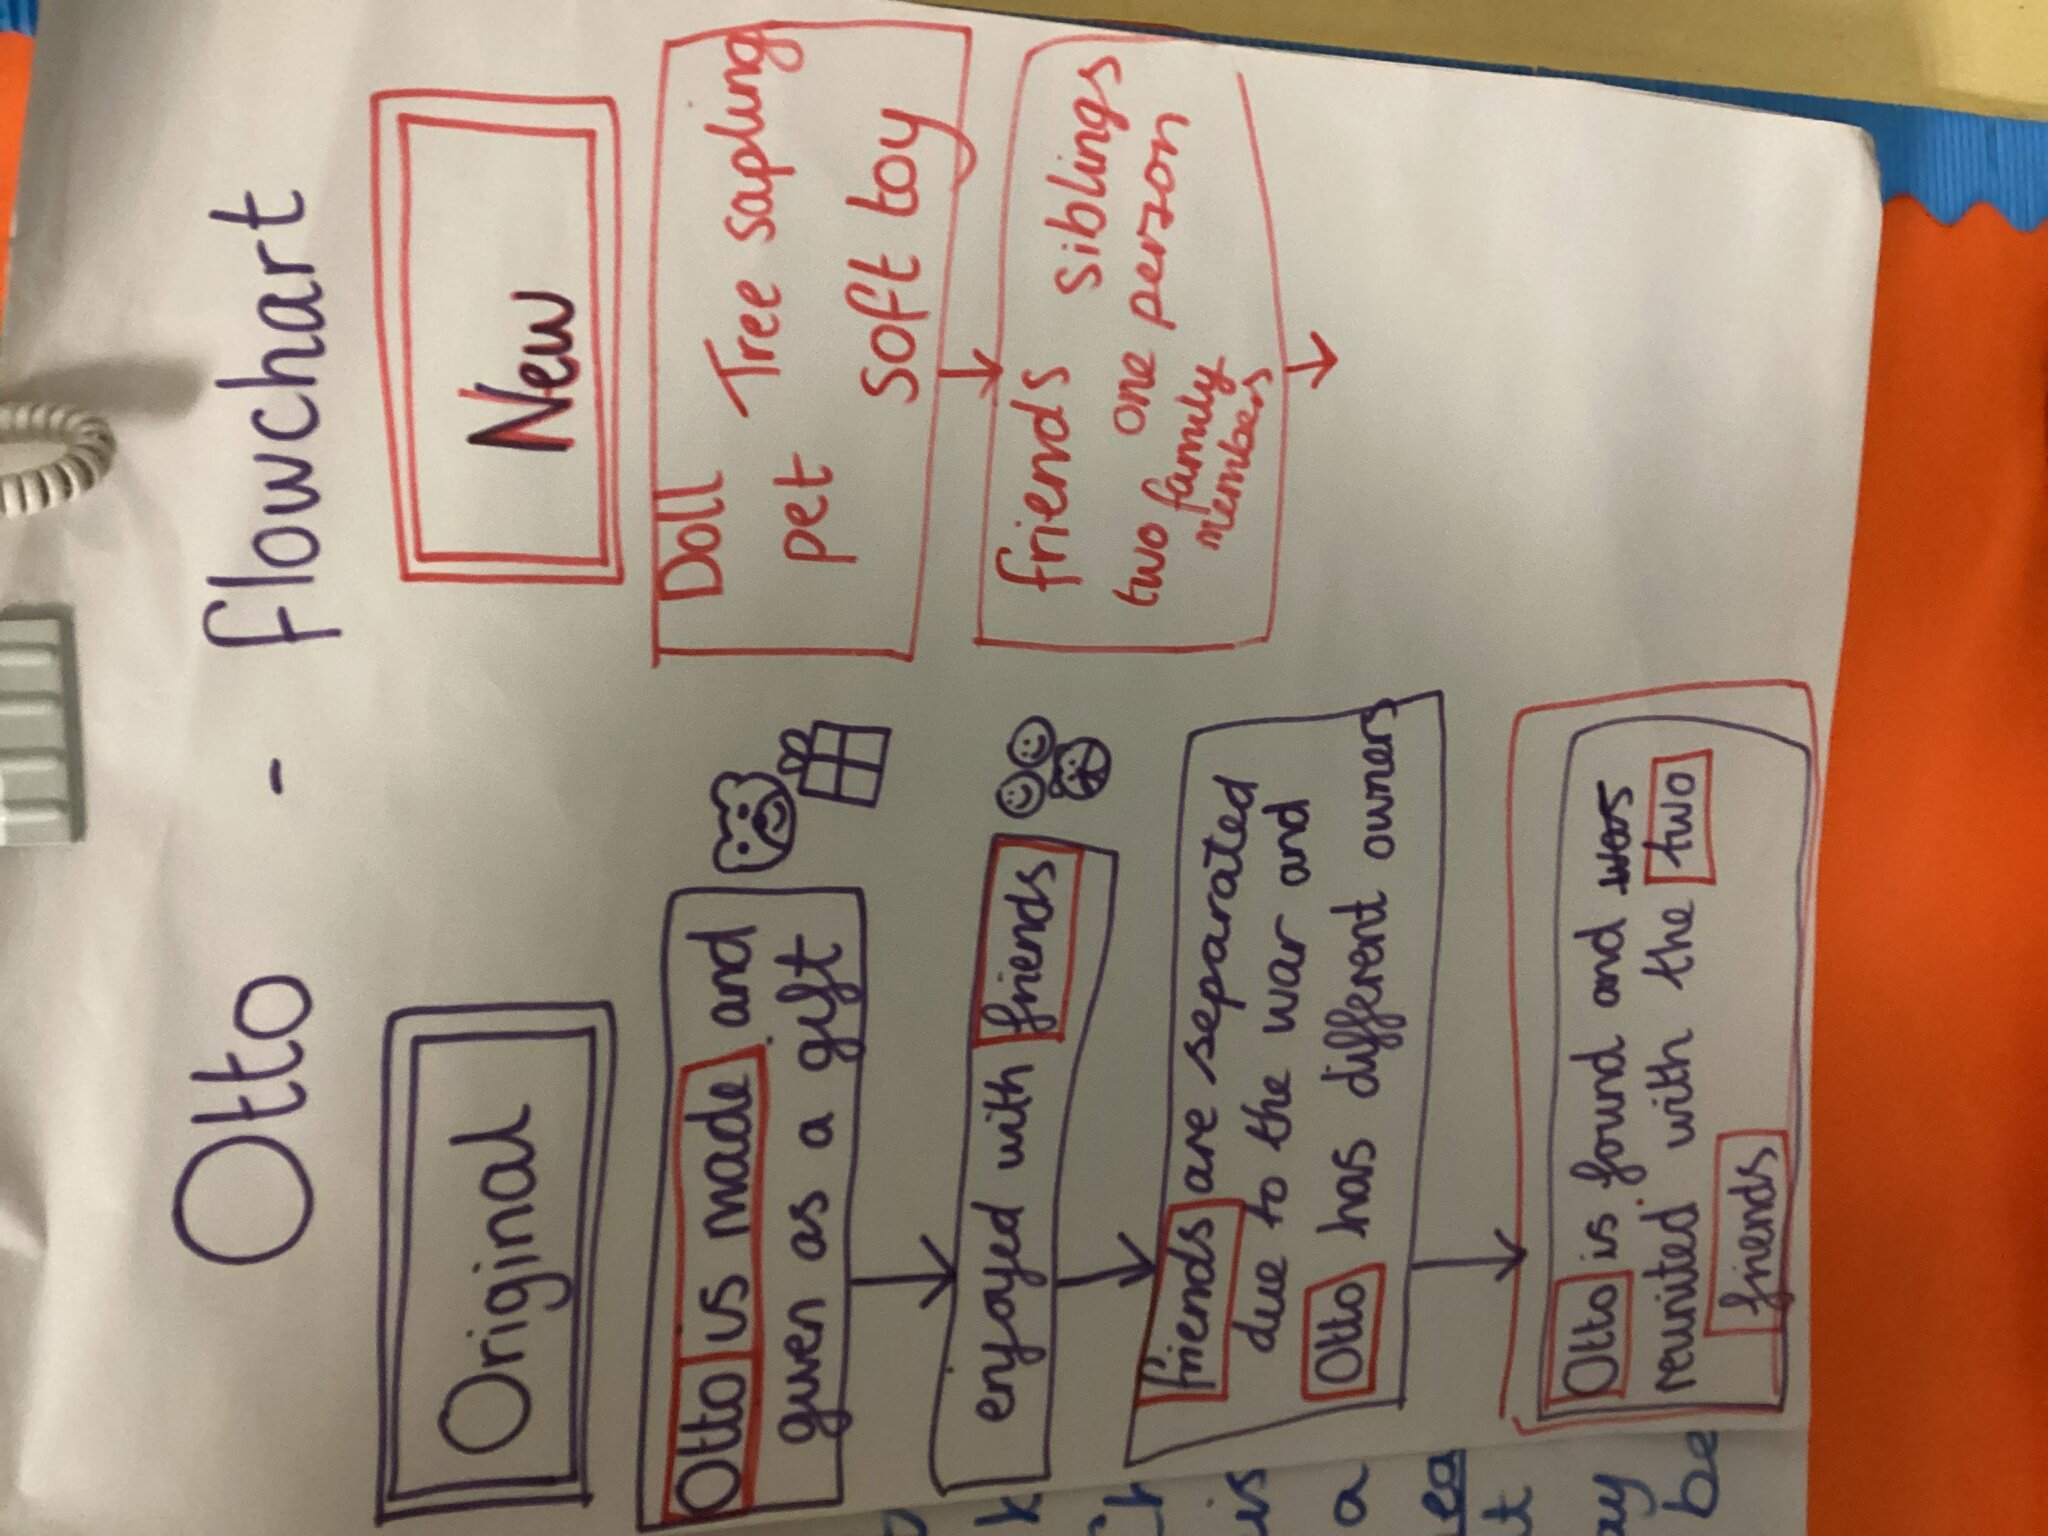 Otto - flowchart
Original
Otto is made and
given as a gift
enjoyed with friends
friends are separated
due to the war and
Otto has different owners
Otto is found and was
reunited with the two
friends
New
Doll
Tree sapling
pet
soft toy
friends
siblings
one person
two family
members
k
Ch
is
a
ea
t
ay
be